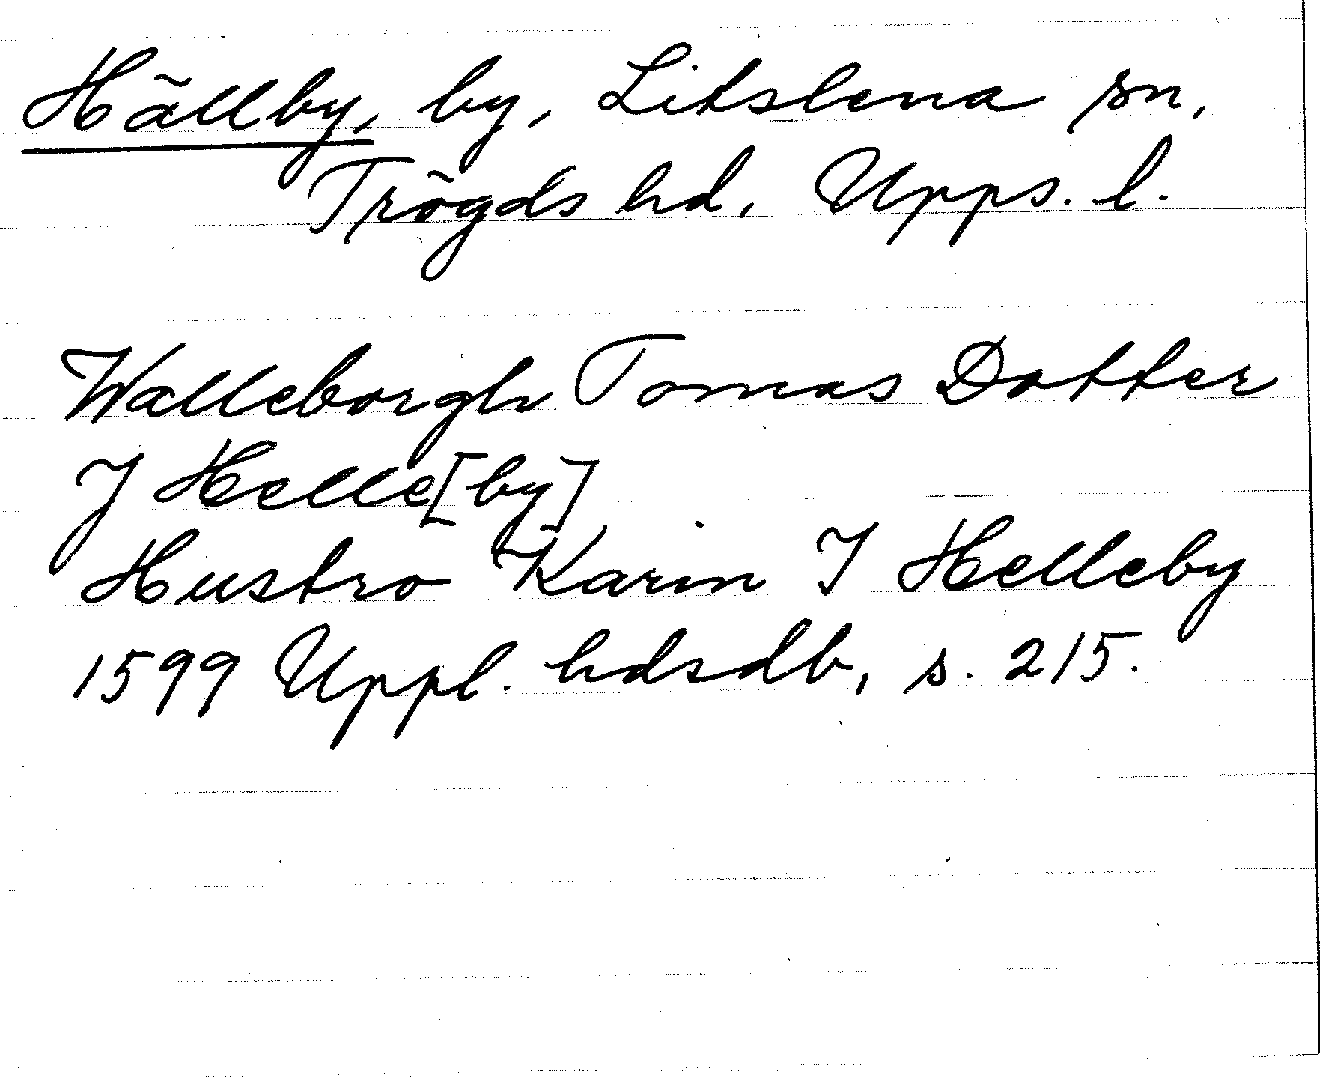 Hällby, by, Litslena sn,
Trögds hd, Upps. l.
Walleborgh Tomas Dotter
J Helle[by]
Hustro Karin J Helleby
1599 Uppl. hdsdb, s. 215.